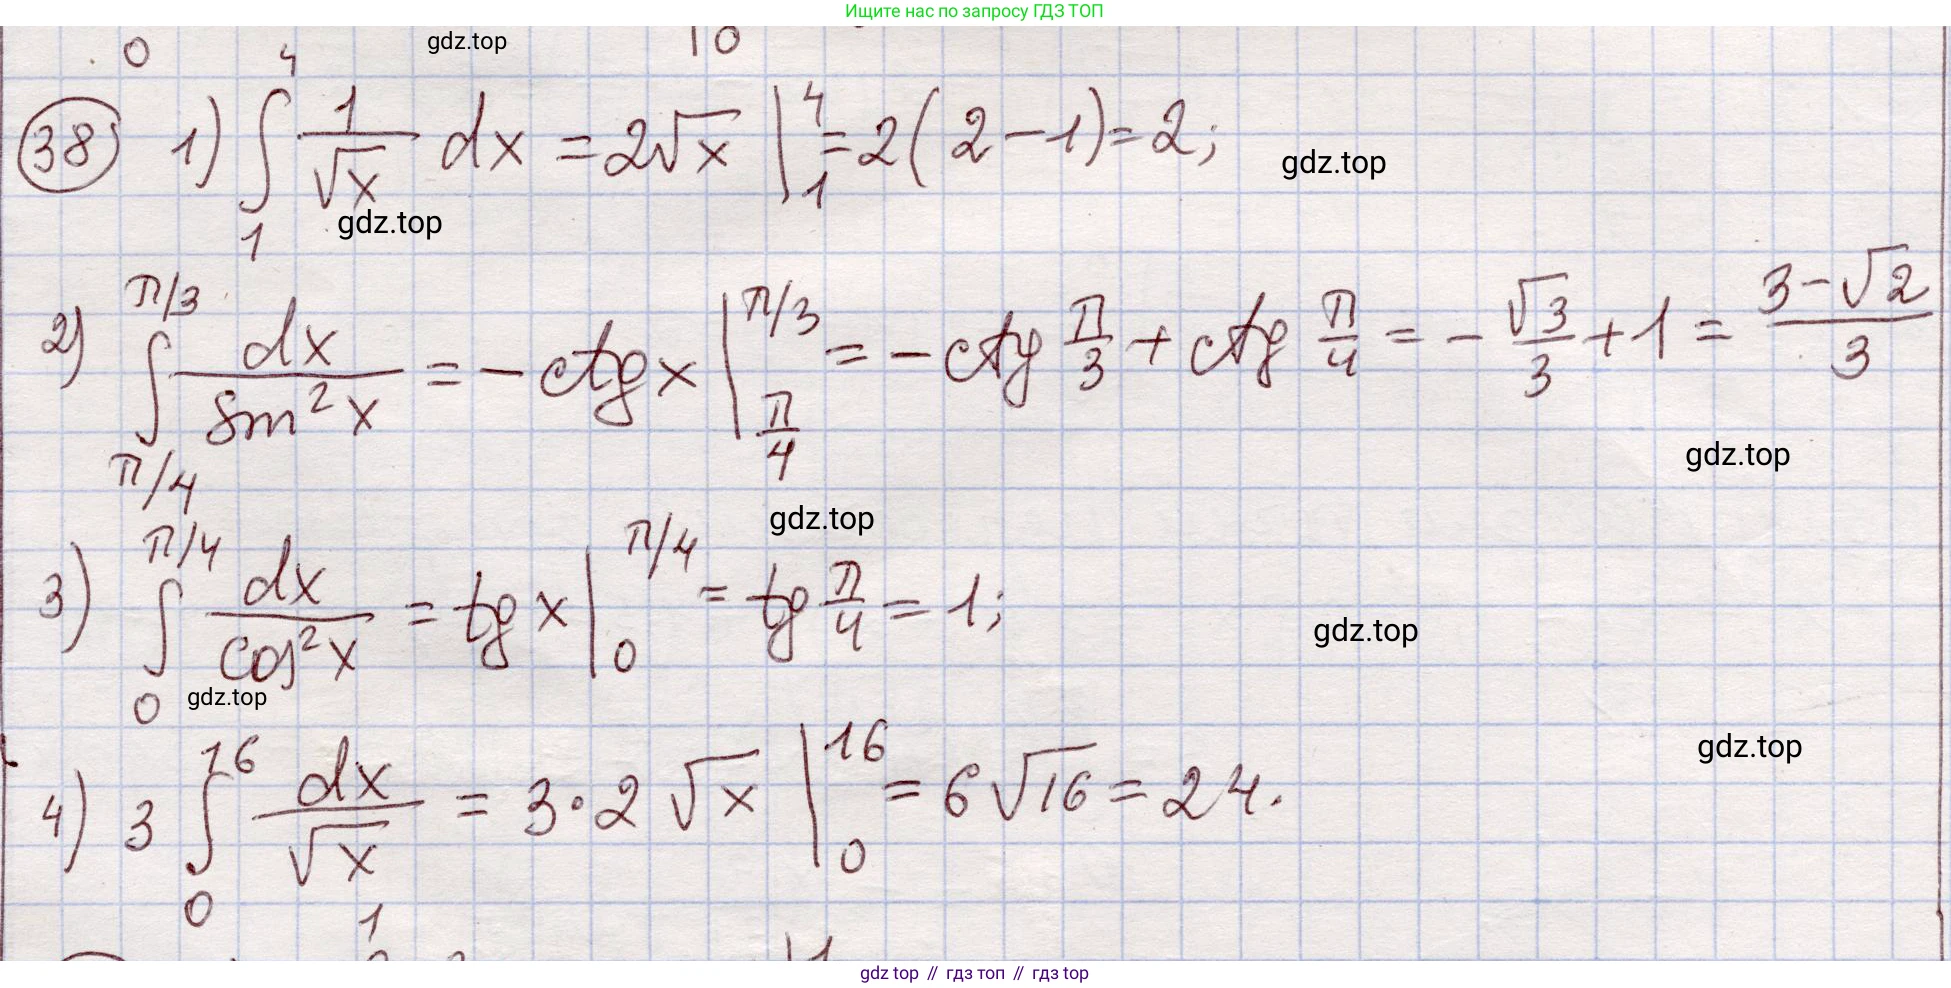 Ищите нас по запросу ГДЗ ТОП
0 gdz.top 10
38 1) ∫₁⁴ 1/√x dx = 2√x |₁⁴ = 2(2-1) = 2; gdz.top
gdz.top
2) ∫_{π/4}^{π/3} dx/sin²x = -ctg x |_{π/4}^{π/3} = -ctg π/3 + ctg π/4 = -√3/3 + 1 = (3-√2)/3
gdz.top
gdz.top
3) ∫₀^{π/4} dx/cos²x = tg x |₀^{π/4} = tg π/4 = 1; gdz.top
gdz.top
gdz.top
4) 3 ∫₀^{16} dx/√x = 3·2 √x |₀^{16} = 6√16 = 24.
1
gdz top // гдз топ // гдз top